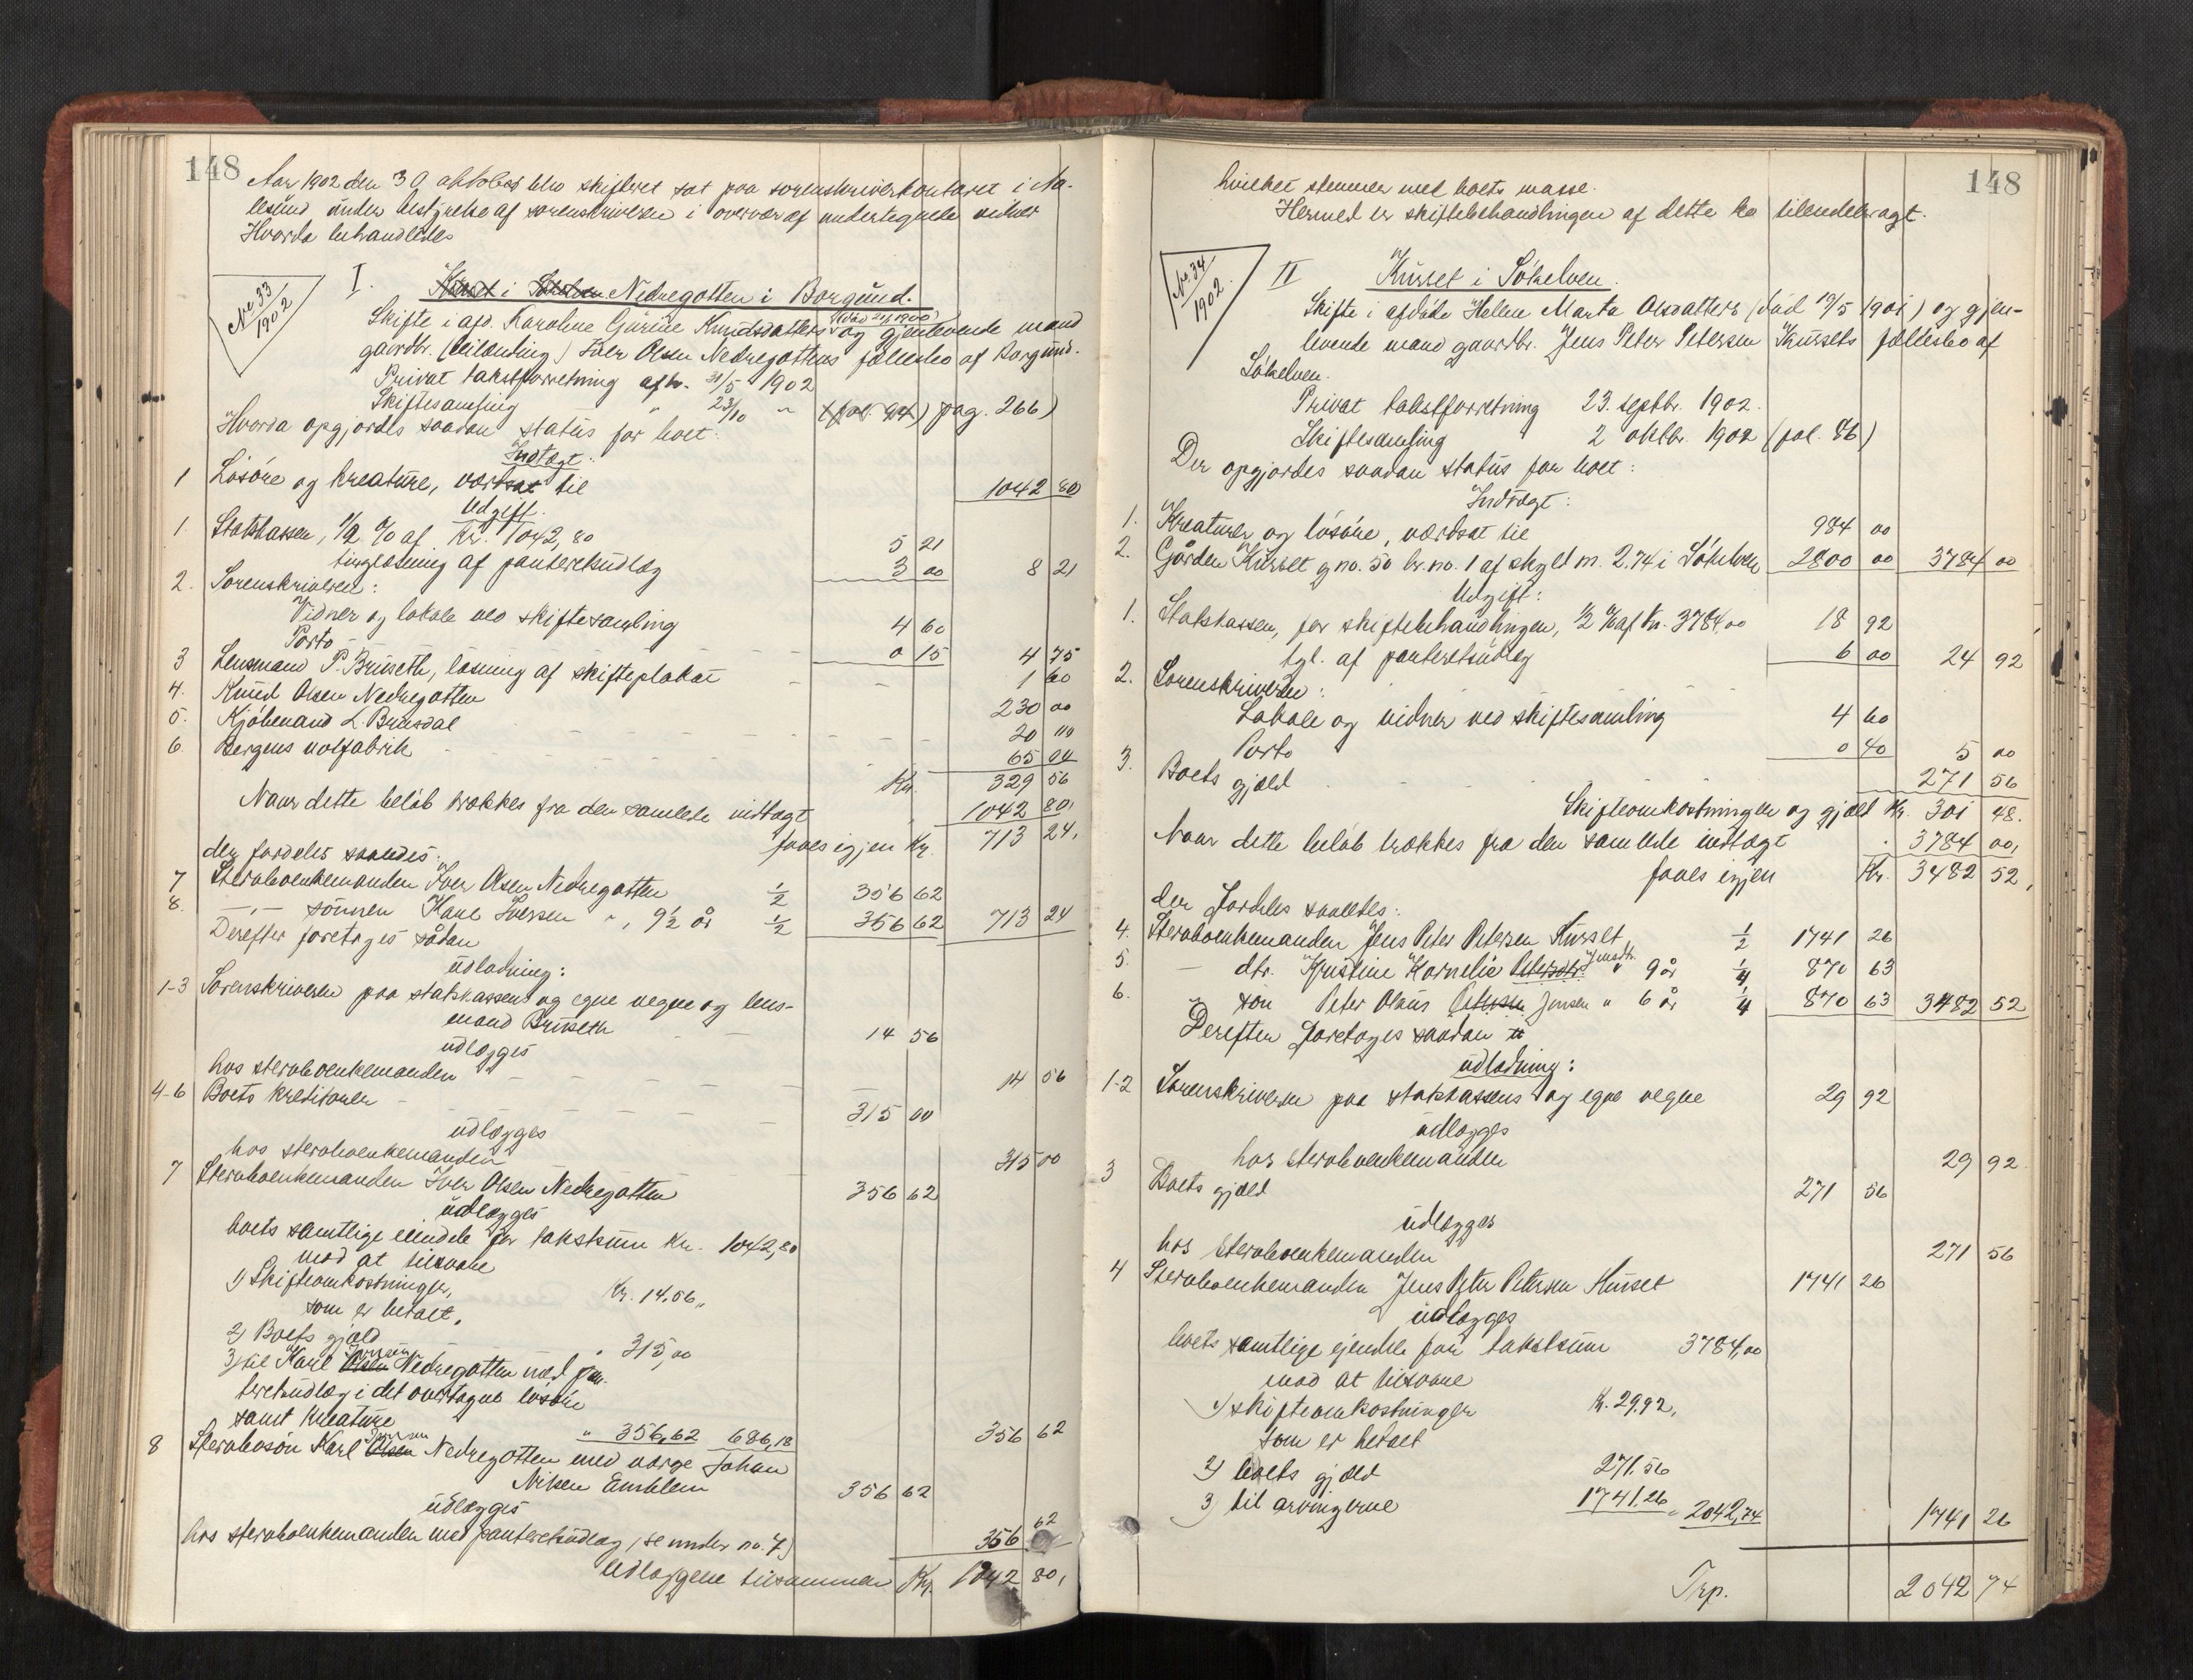 148
Aar 1902 den 30 oktober blev skifteret sat paa sorenskriverkontoret i Aa-
lesund under bestyrelse af sorenskriveren i overvær af undertegnede vidner
Hvorda behandledes
No. 33
1902
I. Nedregotten i Borgund.
Skifte i afd. Karoline Gurine Knudsdatters og gjenlevende mand
gaardbr. Iver Olsen Nedregottens fællesbo af Borgund.
Privat takstforretning afh. 31/5 1902
Skiftesamling " 23/10 " pag. 266)
Hvorda opgjordes saadan status for boet:
Indtægt:
1 Løsøre og kreature, værdsat til 1042 80
Udgift.
1. Statskassen, 1/2 % af Kr. 1042,80 5 21
tinglæsning af panteretsudlæg 3 00 8 21
2. Sorenskriveren:
Vidner og lokale ved skiftesamling 4 60
Porto 0 15 4 75
3 Lensmand P. Brüseth, læsning af skifteplakat 1 60
4. Knud Olsen Nedregotten 230 00
5. Kjøbmand L. Brunsdal 20 00
6. Bergens uldfabrik 65 00
Kr. 329 56
Naar dette beløb trækkes fra den samlede indtægt 1042 80,
faaes igjen Kr. 713 24,
der fordeles saaledes:
7 Stervboenkemanden Iver Olsen Nedregotten 1/2 356 62
8. — " — sønnen Karl Iversen ", 9 1/2 år 1/2 356 62 713 24
Derefter foretages sådan
udlodning:
1-3 Sorenskriveren paa statskassens og egne vegne og lens-
mand Brüseth 14 56
udlægges
hos stervboenkemanden 14 56
4-6 Boets kreditorer 315 00
udlægges
hos stervboenkemanden 315 00
7 Stervboenkemanden Iver Olsen Nedregotten 356 62
udlægges
boets samtlige eiendele for takstsum Kr. 1042,80
mod at tilsvare
1) Skifteomkostninger, Kr. 14.56,
som er betalt,
2) Boets gjæld " 315,00
3) til Karl Olsen Iversen Nedregotten med pan-
teretsudlæg i det overtagne løsøre
samt kreature " 356,62 686,18 356 62
8 Stervbosøn Karl Olsen Iversen Nedregotten med værge Johan
Nilsen Emblem 356 62
udlægges
hos stervboenkemanden med panteretsudlæg (se under no. 7) 356 62
Udlæggene tilsammen Kr. 1042 80,
148
hvilket stemmer med boets masse.
Hermed er skiftebehandlingen af dette bo tilendebragt.
No. 34
1902.
II Kurset i Søkelven.
Skifte i afdøde Helene Marta Olsdatters (død 19/5 1901) og gjen-
levende mand gaardbr. Jens Peter Petersen Kursets fællesbo af
Søkelven.
Privat takstforretning 23. septbr. 1902.
Skiftesamling 2 oktbr. 1902 (fol. 86)
Der opgjordes saadan status for boet:
Indtægt:
1. Kreaturer og løsøre, værdsat til 984 00
2. Gården Kurset g no. 50 br. no. 1 af skyld m. 2.74 i Søkelven 2800 00 3784 00
Udgift:
1. Statskassen, for skiftebehandlingen, 1/2 % af Kr. 3784,00 18 92
tgl. af panteretsudlæg 6 00 24 92
2. Sorenskriveren:
Lokale og vidner ved skiftesamling 4 60
Porto 0 40 5 00
3. Boets gjæld 271 56
Skifteomkostninger og gjæld Kr. 301 48.
Naar dette beløb trækkes fra den samlede indtægt 3784 00,
faaes igjen Kr. 3482 52,
der fordeles saaledes:
4. Stervboenkemanden Jens Peter Petersen Kurset 1/2 1741 26
5. — dtr. Kristine Kornelie Petersdtr. Jensdtr. " 9 år 1/4 870 63
6. " søn Peter Olaus Petersen Jensen " 6 år 1/4 870 63 3482 52
Derefter foretages saadan
udlodning:
1-2 Sorenskriveren paa statskassens og egne vegne 29 92
udlægges
hos stervboenkemanden 29 92
3 Boets gjæld 271 56
udlægges
hos stervboenkemanden 271 56
4 Stervboenkemanden Jens Peter Petersen Kurset 1741 26
udlægges
boets samtlige ejendele for takstsum 3784,00
mod at tilsvare
1) skifteomkostninger Kr. 29.92,
som er betalt
2) boets gjæld 271.56
3) til arvingerne 1741.26 " 2042,74 1741 26
Trp. 2042 74